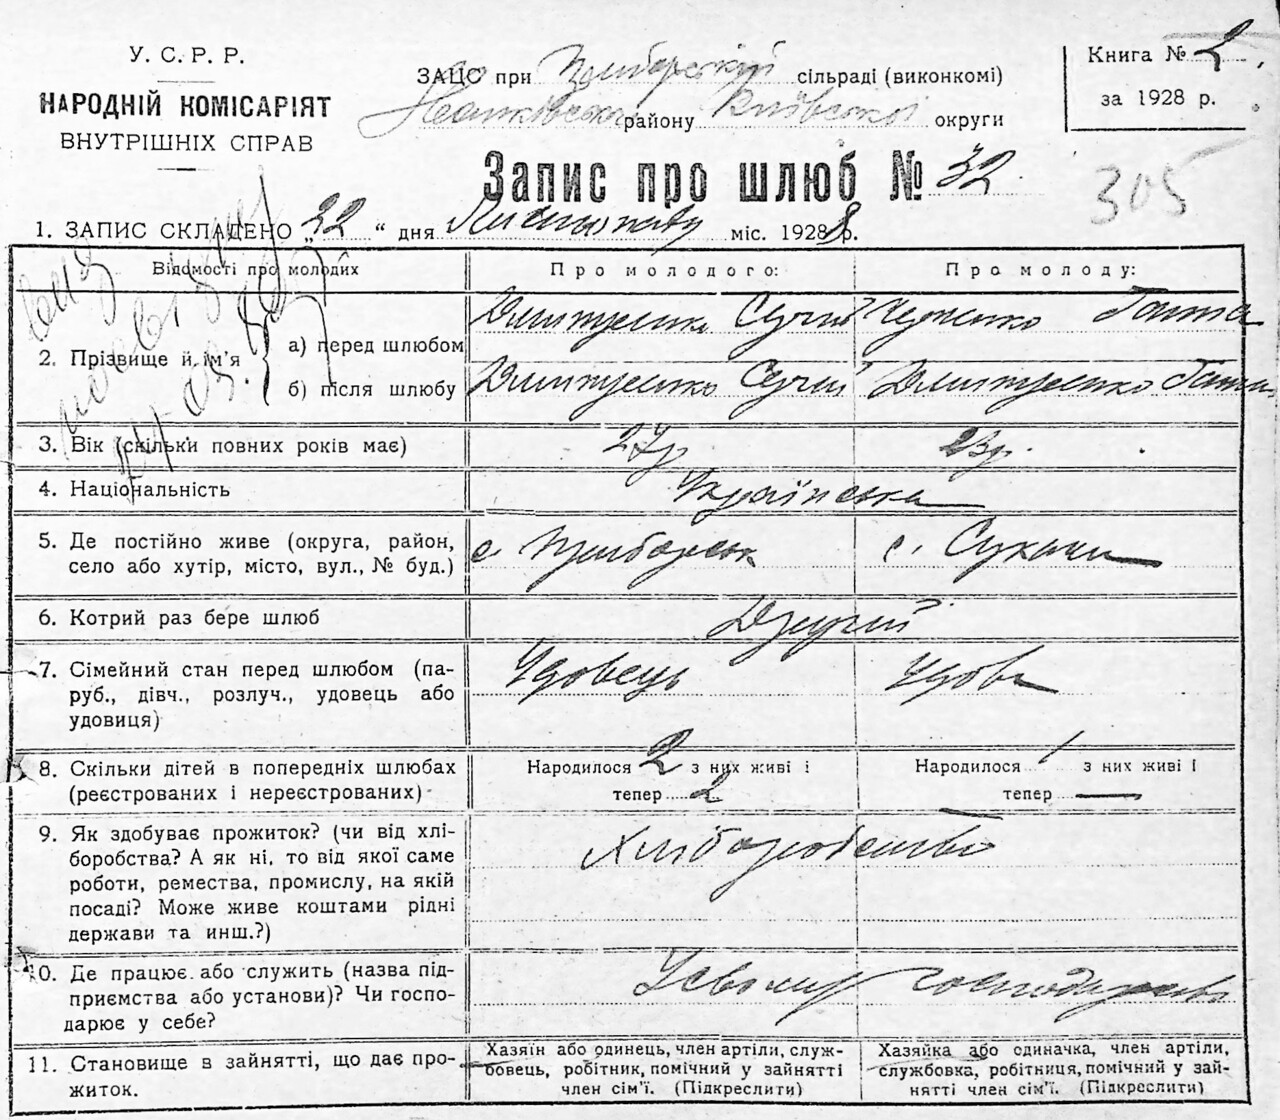 У. С. Р. Р.
НАРОДНІЙ КОМІСАРІЯТ
ВНУТРІШНІХ СПРАВ
ЗАЦС при Приборській сільраді (виконкомі)
Іванківського району Київської округи
Книга №
за 1928 р.
305
Запис про шлюб № 32
1. ЗАПИС СКЛАДЕНО „22“ дня Листопаду міс. 1928 р.
Відомості про молодих
Про молодого:
Про молоду:
2. Прізвище й ім'я
а) перед шлюбом
Дмитренко Сергій
Ганна
б) після шлюбу
Дмитренко Сергій
Дмитренко Ганна
3. Вік (скільки повних років має)
27р
23р.
4. Національність
Українська
5. Де постійно живе (округа, район,
село або хутір, місто, вул., № буд.)
с. Приборськ
с. Сукачи
6. Котрий раз бере шлюб
Другий
7. Сімейний стан перед шлюбом (па-
руб., дівч., розлуч., удовець або
удовиця)
Удовець
Удова
8. Скільки дітей в попередніх шлюбах
(реєстрованих і нереєстрованих)
Народилося 2 з них живі і
тепер 2
Народилося 1 з них живі і
тепер —
9. Як здобуває прожиток? (чи від хлі-
боробства? А як ні, то від якої саме
роботи, ремества, промислу, на якій
посаді? Може живе коштами рідні
держави та инш.?)
Хліборобство
10. Де працює або служить (назва під-
приємства або установи)? Чи госпо-
дарює у себе?
У свому господарстві
11. Становище в зайнятті, що дає про-
житок.
Хазяїн або одинець, член артіли, служ-
бовець, робітник, помічний у зайнятті
член сім'ї. (Підкреслити)
Хазяйка або одиначка, член артіли,
службовка, робітниця, помічний у зай-
нятті член сім'ї. (Підкреслити)